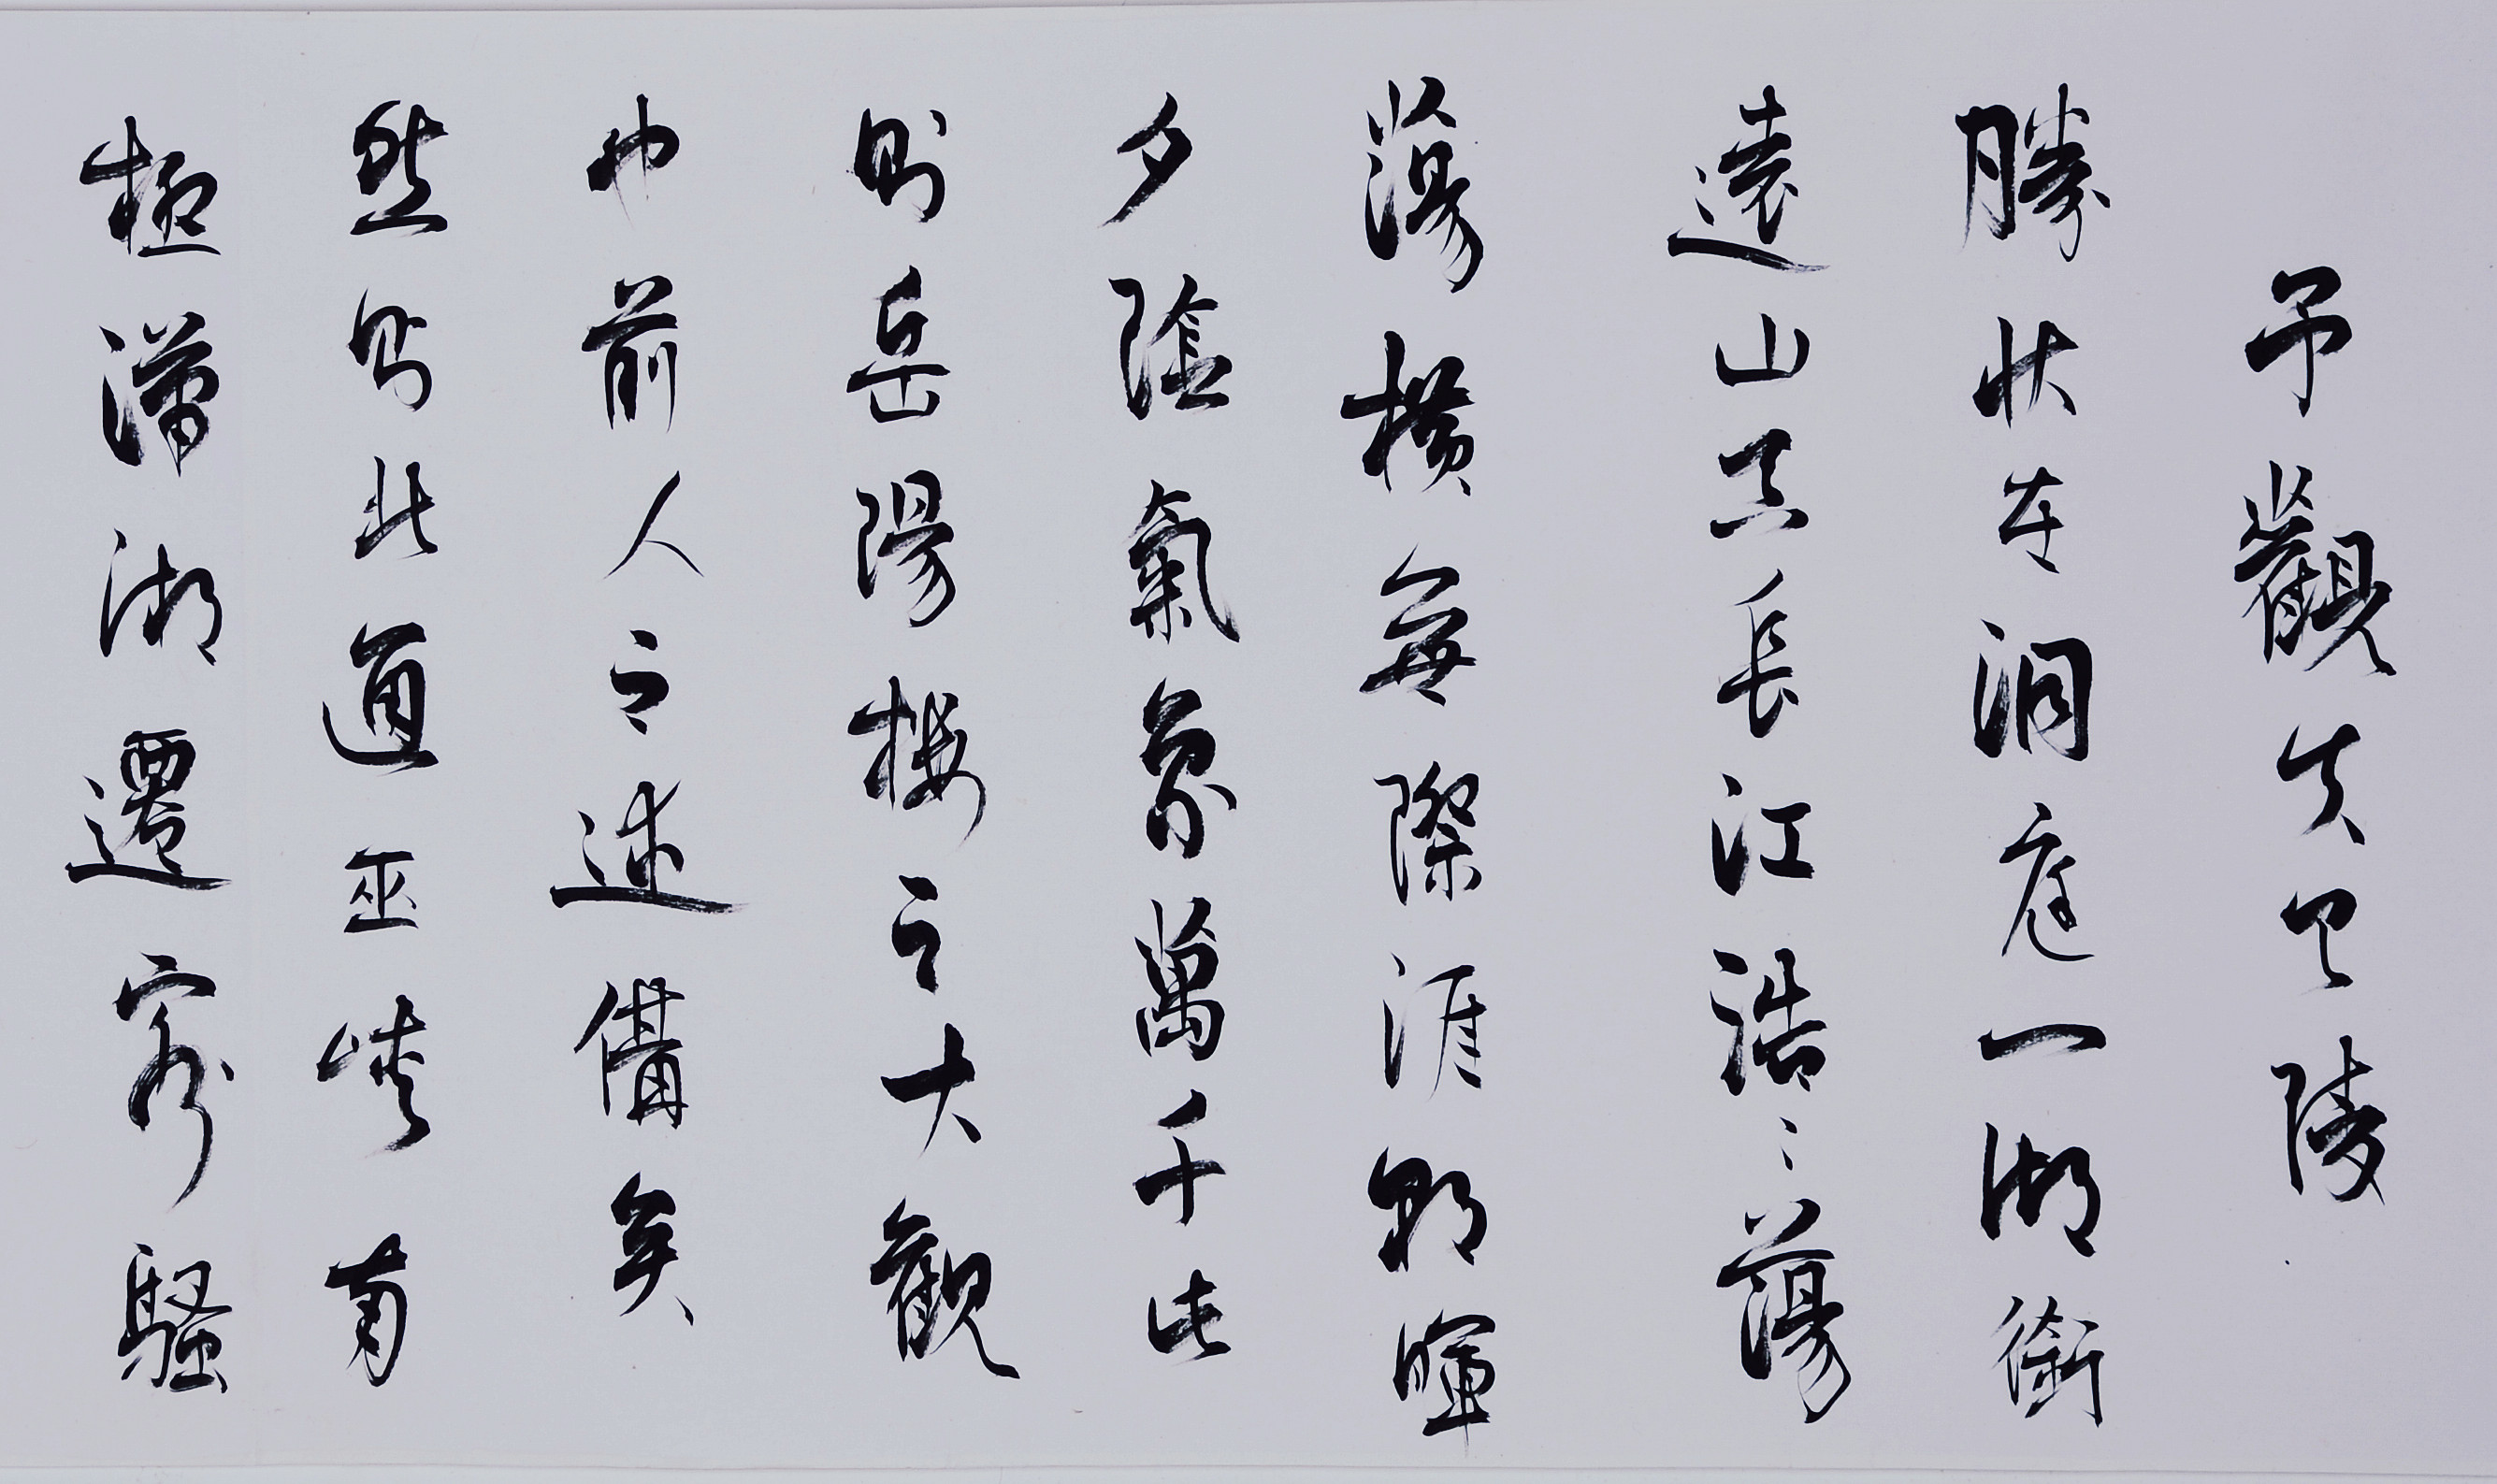 予觀夫巴陵
勝狀在洞庭一湖銜
遠山吞長江浩〻蕩
蕩橫無際涯朝暉
夕陰氣象萬千此
則岳陽樓之大觀
也前人之述備矣
然則北通巫峽南
極瀟湘遷客騷